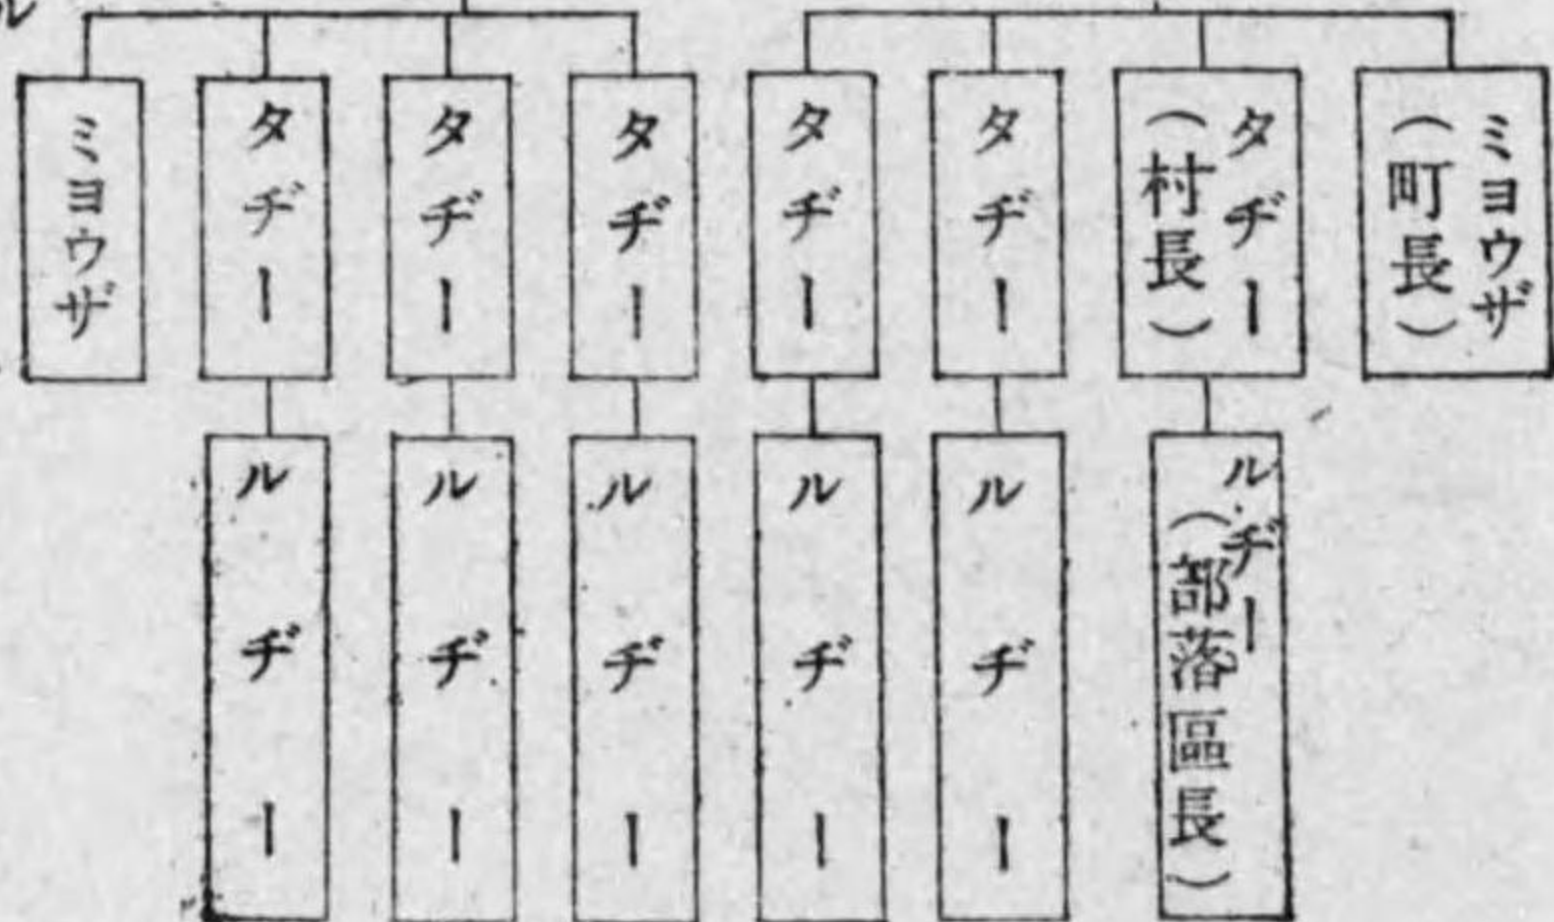 ミヨウザ
(町長)
タヂー
(村長)
タヂー
タヂー
タヂー
タヂー
タヂー
ミヨウザ
ルヂー
(部落區長)
ルヂー
ルヂー
ルヂー
ルヂー
ルヂー
ル